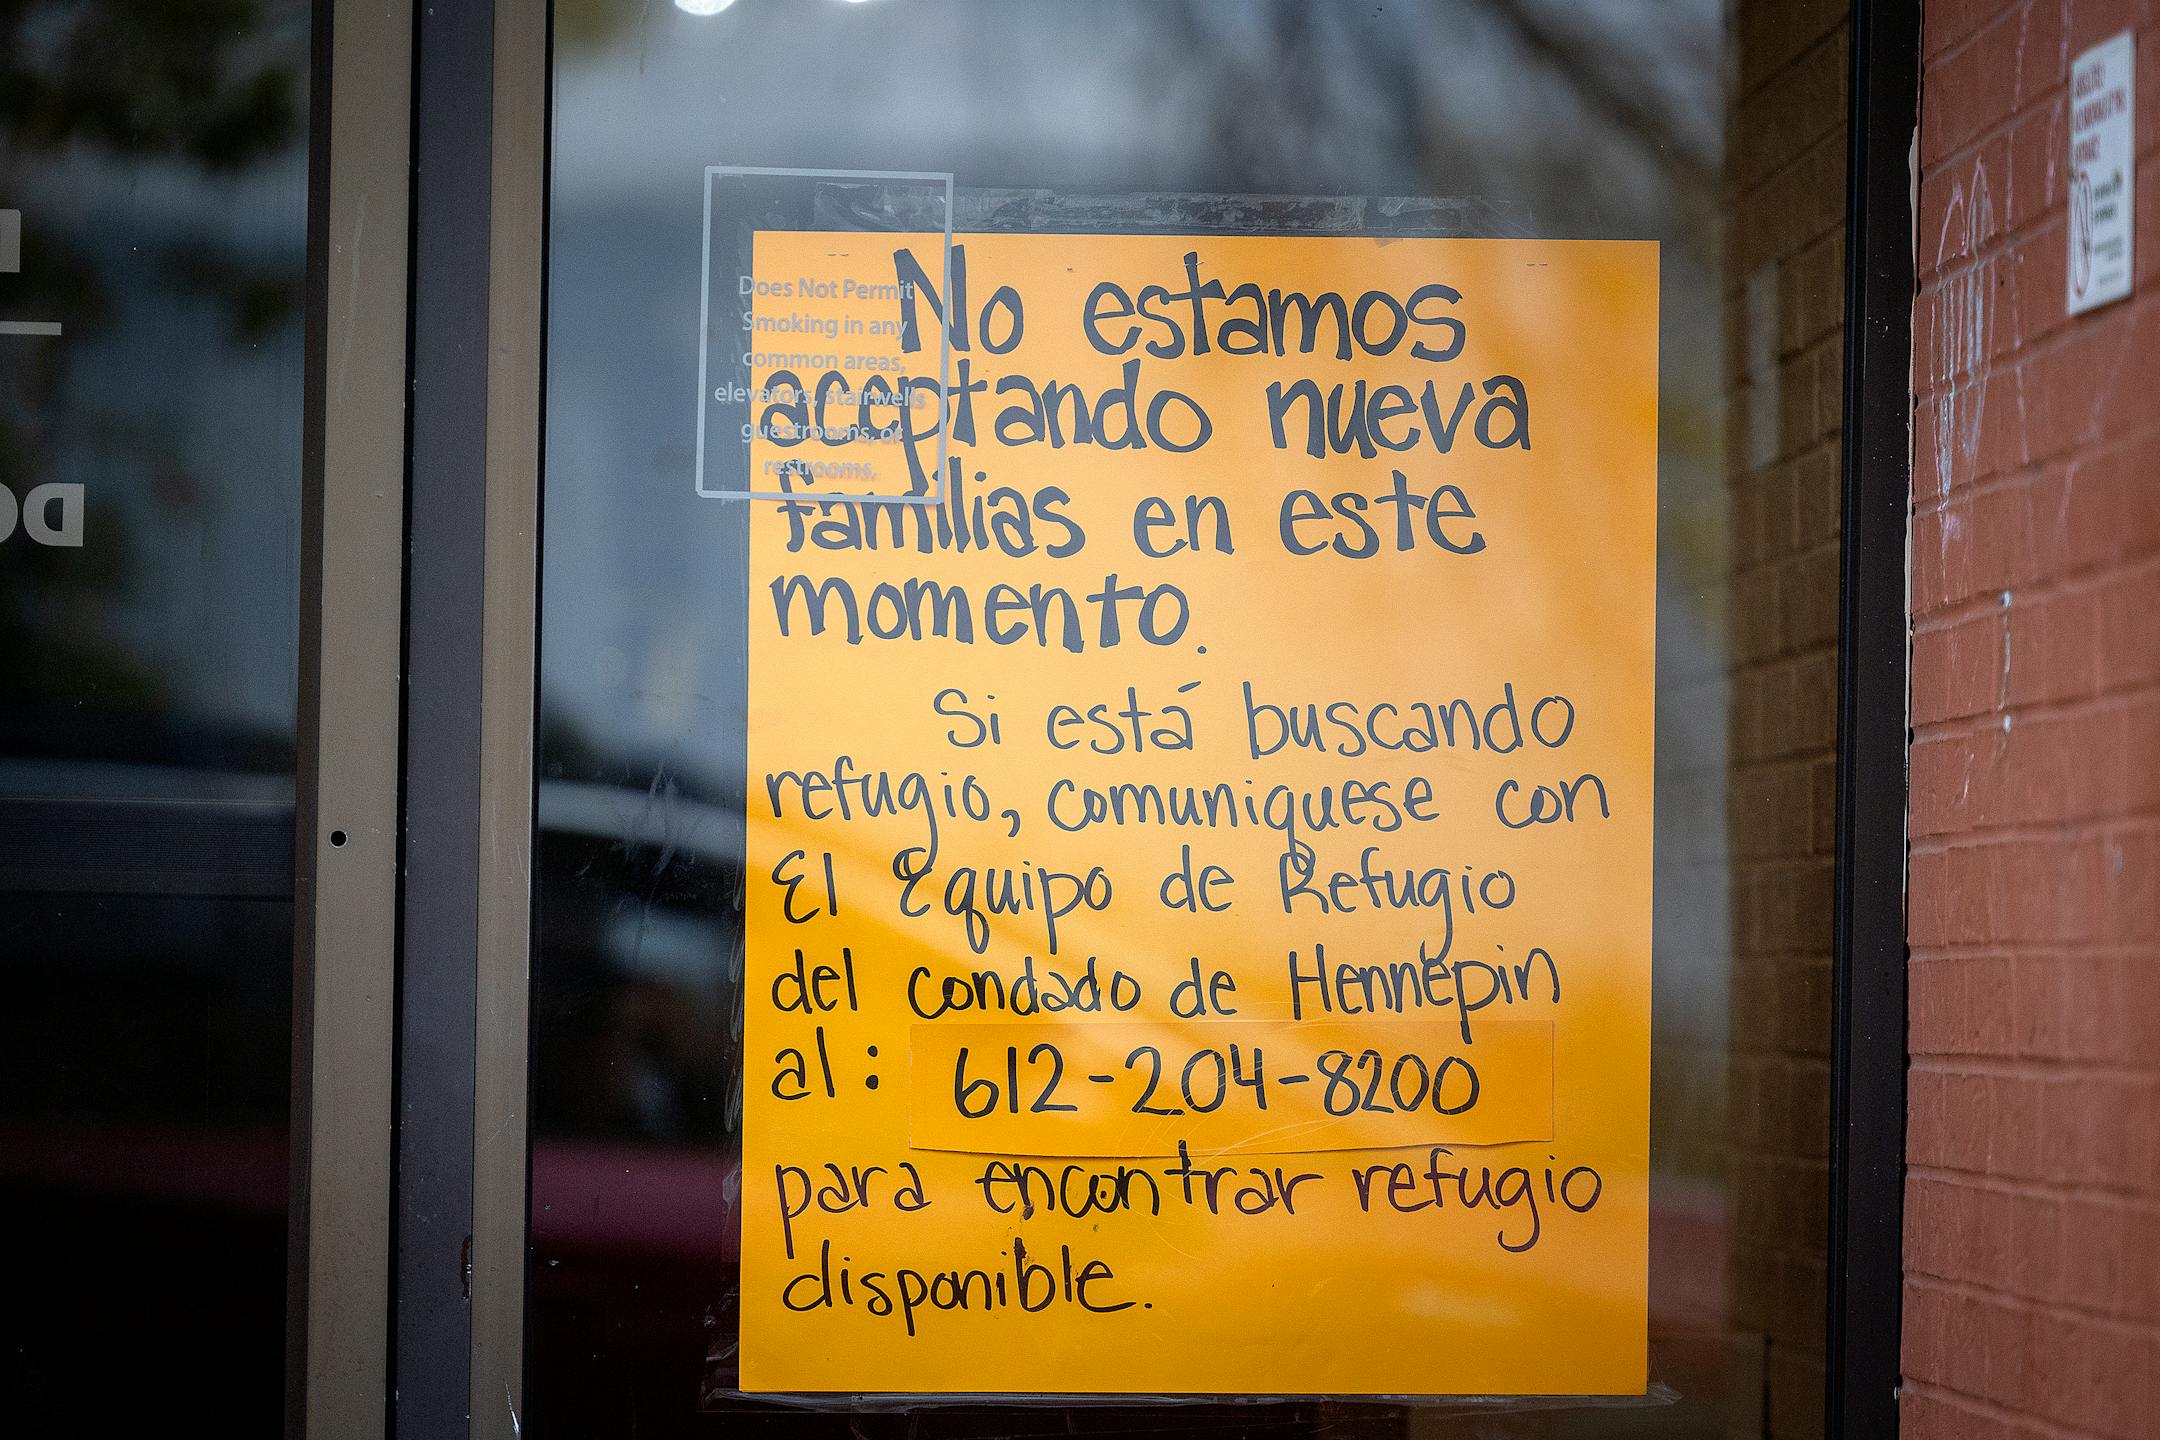 Does Not Permit
Smoking in any
common areas,
elevators, stairwells
guestrooms, or
restrooms.
No estamos
aceptando nueva
familias en este
momento.
Si está buscando
refugio, comuniquese con
El Equipo de Refugio
del condado de Hennepin
al: 612-204-8200
para encontrar refugio
disponible.